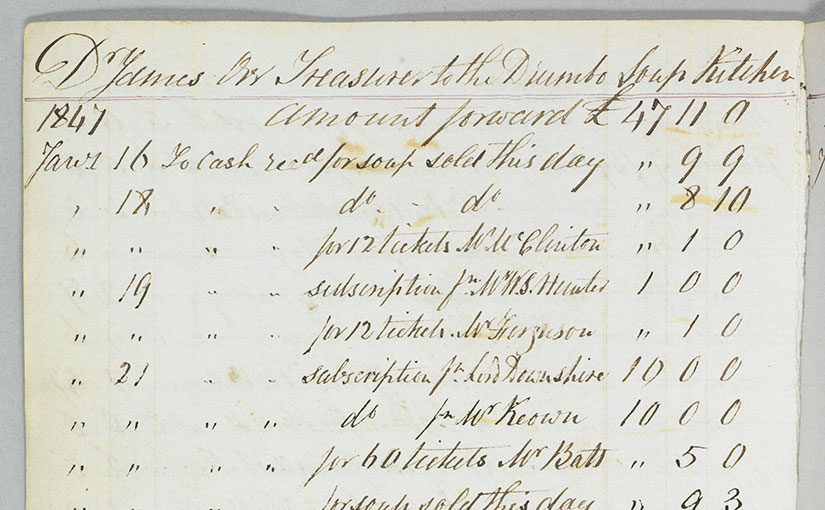 Dr James Orr Treasurer to the Drumbo Soup Kitchen
1847 Amount forward £ 47 11 0
Jany 16 To cash recd for soup sold this day " 9 9
" 18 " " do do " 8 10
" " " " for 12 tickets Mr McClinton " 1 0
" 19 " " subscription fm Mr W.S. Hunter 1 0 0
" " " " for 12 tickets Mr Ferguson " 1 0
" 21 " " subscription fm Lord Downshire 10 0 0
" " " " do fm Mr Keown 10 0 0
" " " " for 60 tickets Mr Batt " 5 0
" " " " for soup sold this day " 9 3